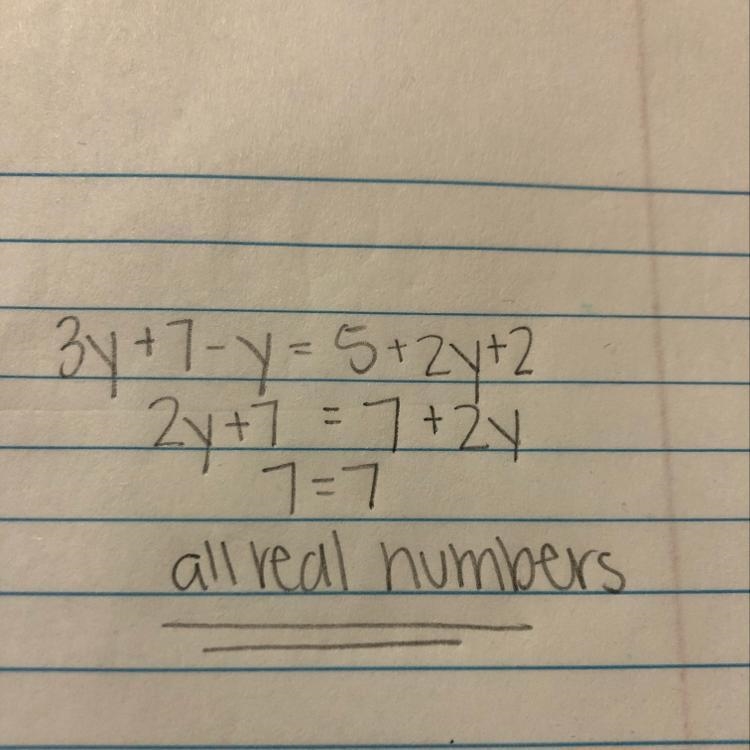 3y+7-y=5+2y+2
2y+7=7+2y
7=7
all real numbers